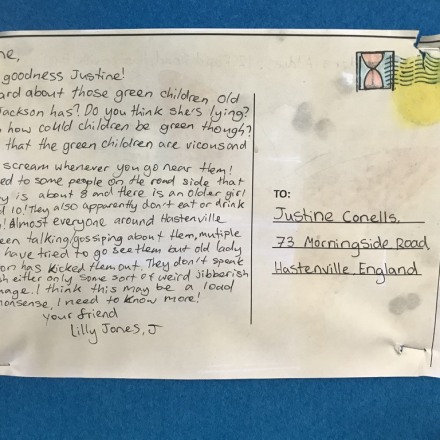 ne,
goodness Justine!
ard about those green children Old
Jackson has? Do you think she's lying?
how could children be green though?
that the green children are vicous and
scream whenever you go near them!
ed to some people on the road side that
y is about 8 and there is an older girl
d 10! They also apparently don't eat or drink
! Almost everyone around Hastenville
een talking/gossiping about them, mutiple
have tried to go see them but old lady
on has kicked them out. They don't speak
sh either only some sort of weird jibberish
uage. I think this may be a load
nonsense, I need to know more!
your friend
Lilly Jones, J
TO:
Justine Conells
73 Morningside Road
Hastenville England